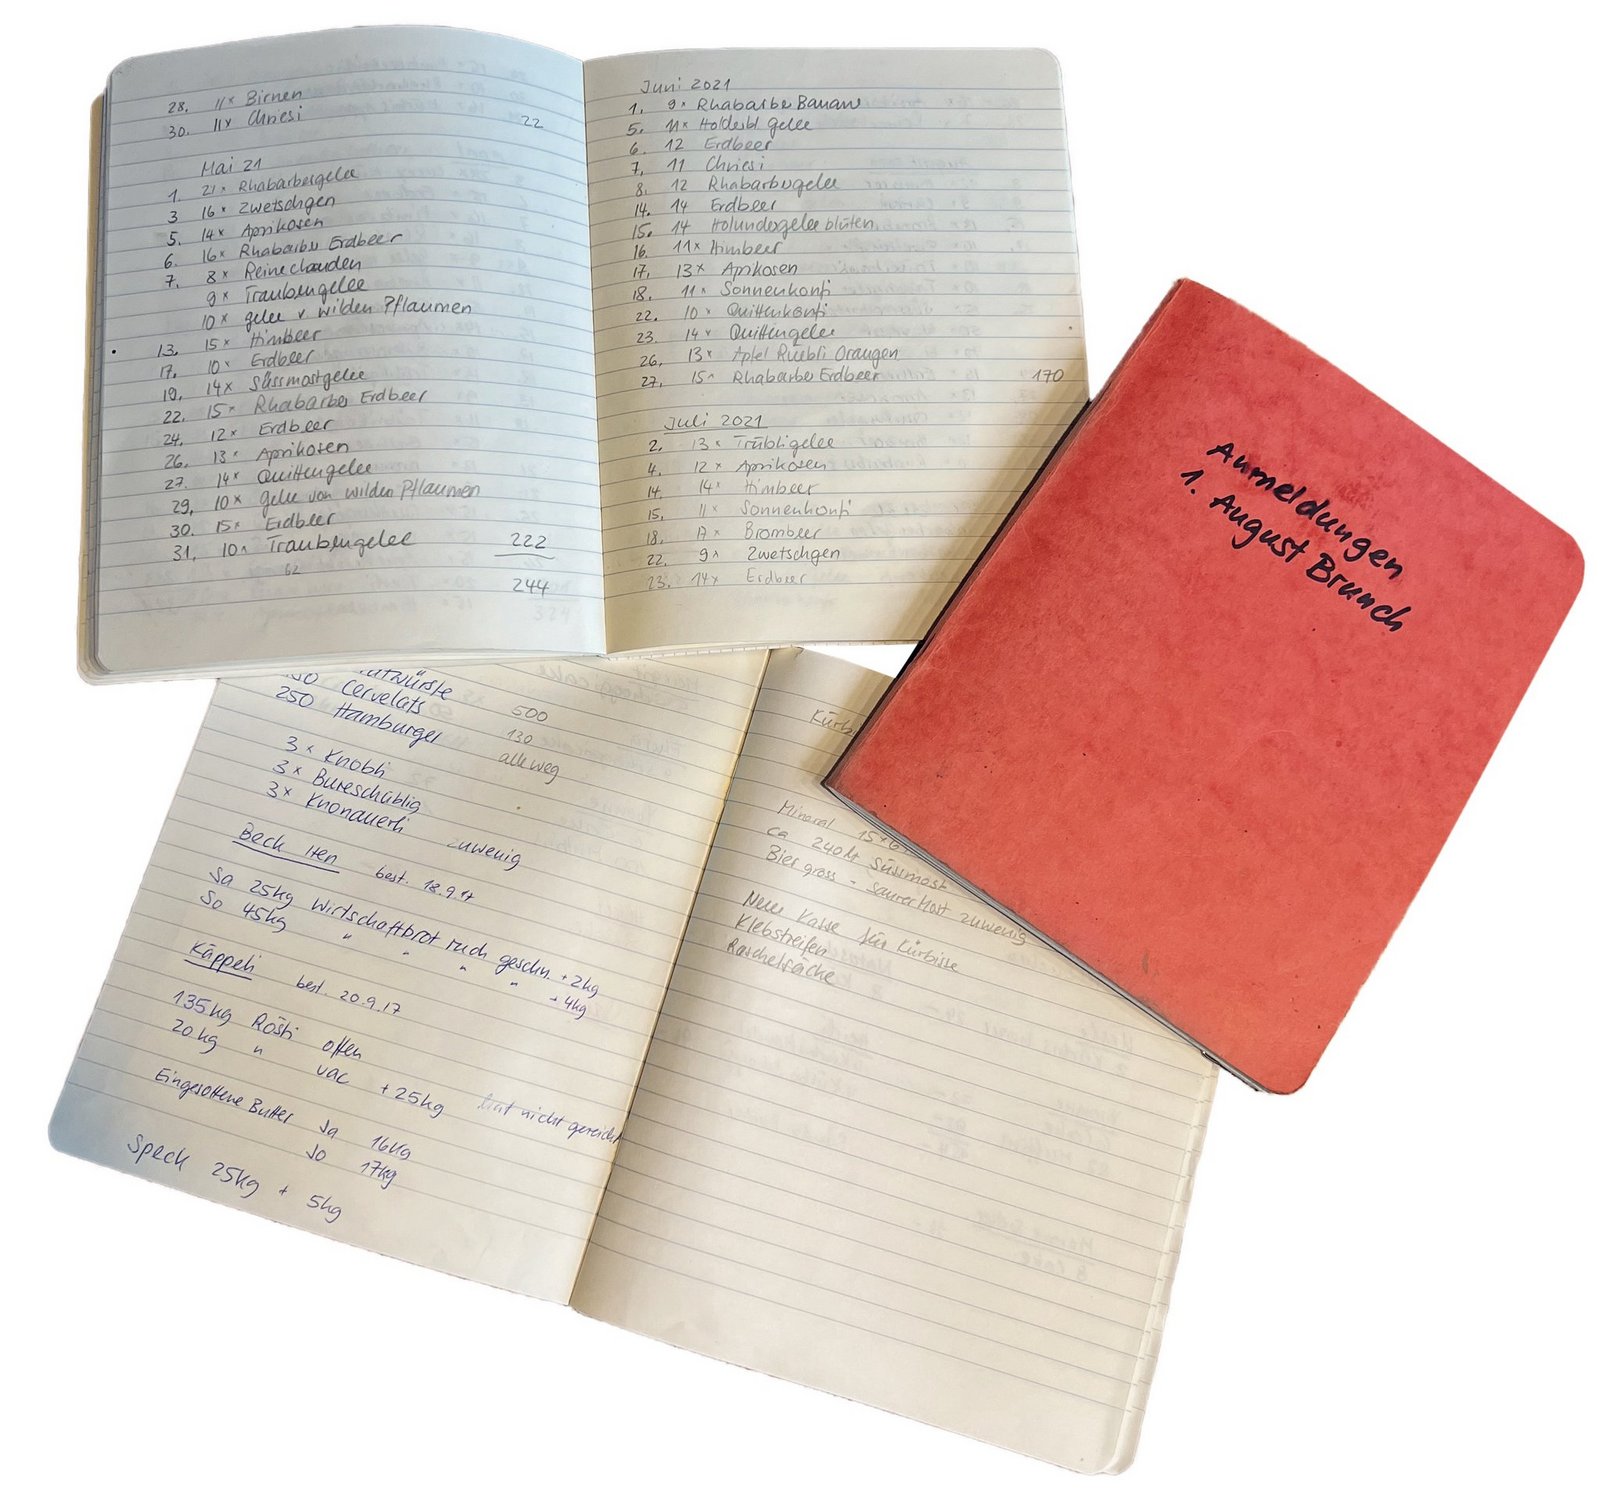 28. 11x Birnen
30. 11x Chriesi 22
Mai 21
1. 21x Rhabarbergelee
3 16x Zwetschgen
5. 14x Aprikosen
6. 16x Rhabarber Erdbeer
7. 8x Reineclauden
9x Traubengelee
10x gelee v wilden Pflaumen
13. 15x Himbeer
17. 10x Erdbeer
19. 14x Süssmostgelee
22. 15x Rhabarber Erdbeer
24. 12x Erdbeer
26. 13x Aprikosen
27. 14x Quittengelee
29. 10x gelee von wilden Pflaumen
30. 15x Erdbeer
31. 10x Traubengelee 222
62
244
Juni 2021
1. 9x Rhabarber Banane
5. 11x Holderbl. gelee
6. 12 Erdbeer
7. 11 Chriesi
8. 12 Rhabarbergelee
14. 14 Erdbeer
15. 14 Holundergelee blüten
16. 11x Himbeer
17. 13x Aprikosen
18. 11x Sonnenkonfi
22. 10x Quittenkonfi
23. 14x Quittengelee
26. 13x Apfel Rüebli Orangen
27. 15x Rhabarber Erdbeer 170
Juli 2021
2. 13x Trübligelee
4. 12x Aprikosen
14. 14x Himbeer
15. 11x Sonnenkonfi
18. Brombeer
22. 9x Zwetschgen
23. 14x Erdbeer
Anmeldungen
1. August Brunch
Cervelats 500
250 Hamburger 130
alle weg
3x Knobli
3x Bureschüblig
3x Knonauerli zuwenig
Beck Iten best. 18.9.17
Sa 25kg Wirtschaftbrot ruch geschn. +2kg
So 45kg " " " " +4kg
Käppeli best. 20.9.17
135kg Rösti offen
20kg " vac +25kg hat nicht gereicht
Eingesottene Butter Sa 16kg
So 17kg
Speck 25kg + 5kg
Mineral 15x6
ca 240 lt Süssmost
Bier gross - saurer Most zuwenig
Neue Kasse für Kürbisse
Klebstreifen
Raschelsäcke